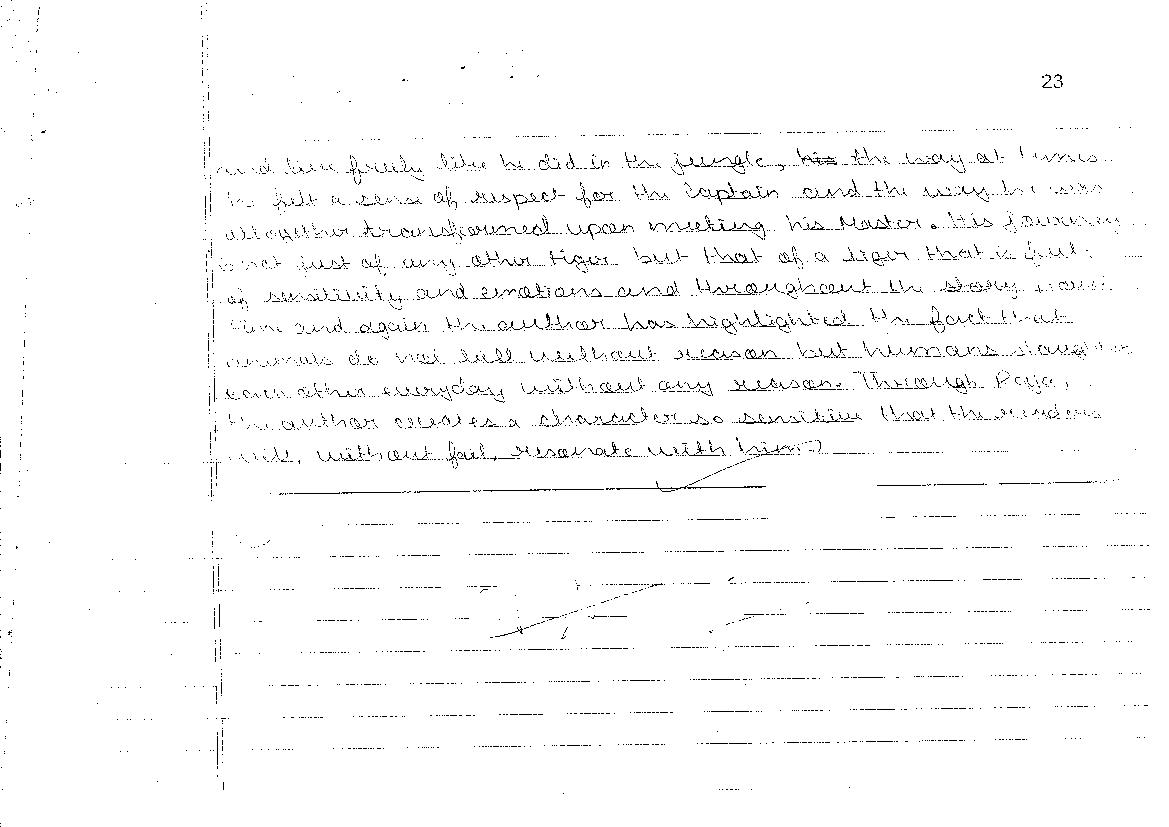 23
and live freely like he did in the jungle, his the way at times
he felt a sense of respect for the Captain and the way he was
altogether transformed upon meeting his Master. His journey
is not just of any other tiger but that of a tiger that is full
of sensitivity and emotions and throughout the story
time and again the author has highlighted the fact that
animals do not kill without reason but humans slaughter
each other everyday without any reason. Through Raja,
the author creates a character so sensitive that the readers
will, without fail, resonate with him.